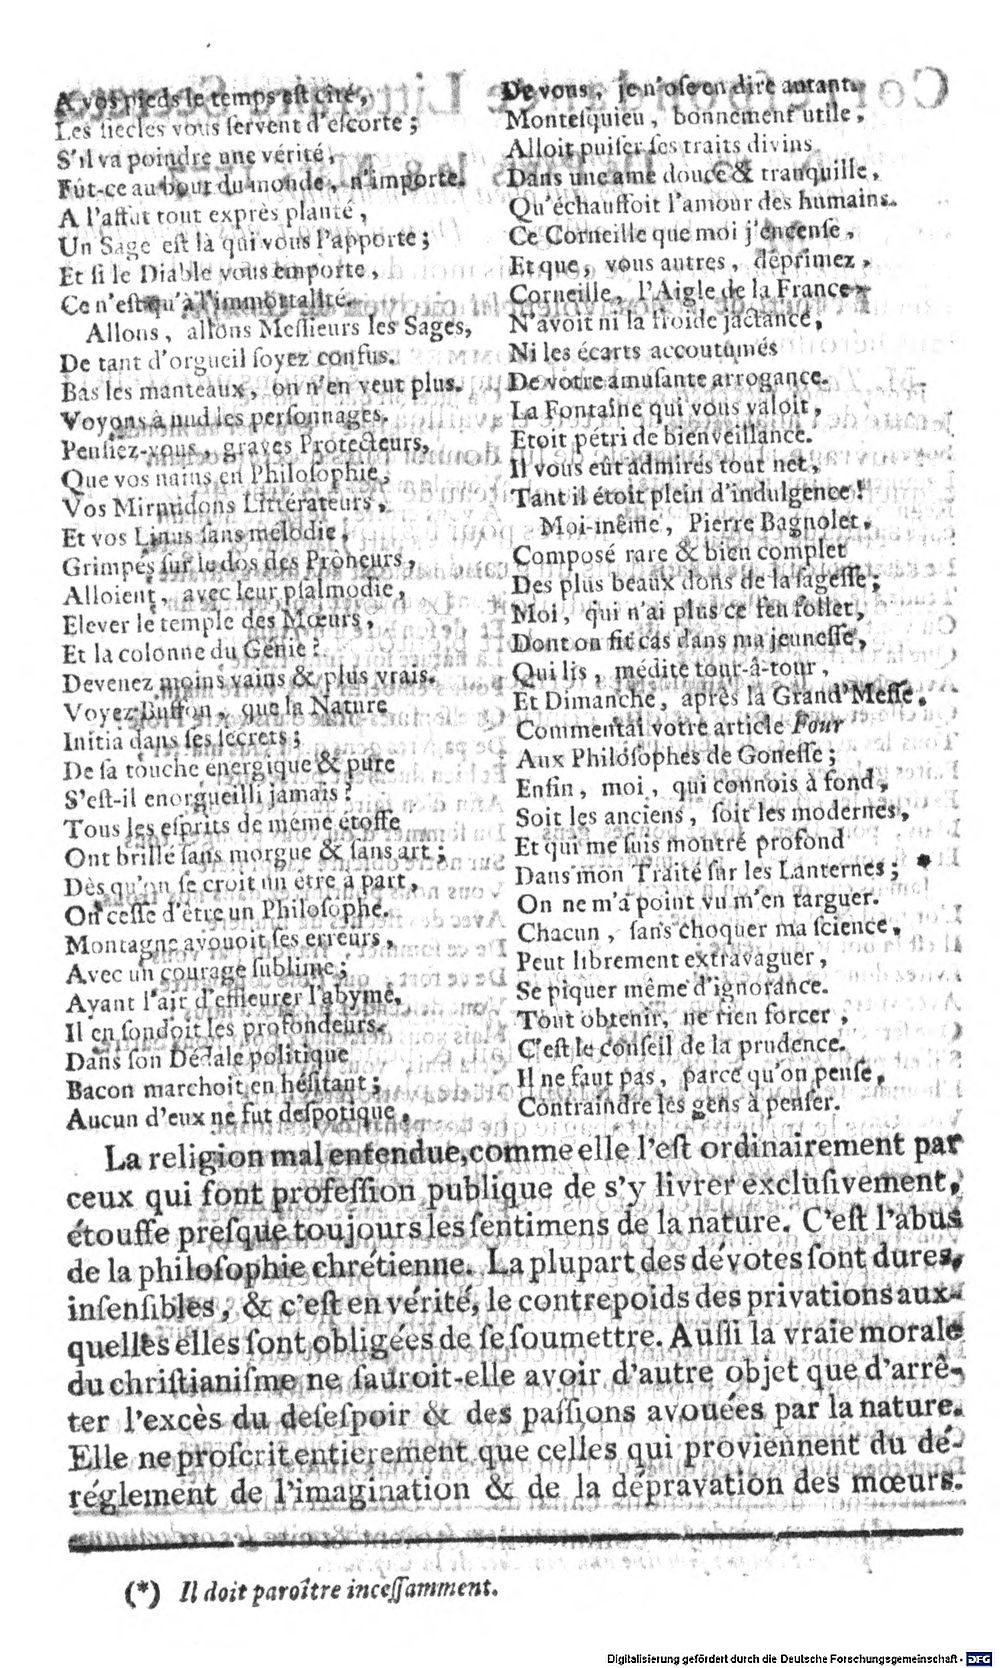 A vos pieds le temps est cité,
Les siecles vous ſervent d'eſcorte ;
S'il va poindre une vérité,
Fût-ce au bout du monde, n'importe.
A l'affut tout exprès planté,
Un Sage eſt là qui vous l'apporte ;
Et ſi le Diable vous emporte,
Ce n'eſt qu'à l'immortalité.
Allons, allons Meſſieurs les Sages,
De tant d'orgueil ſoyez confus.
Bas les manteaux, on n'en veut plus.
Voyons à nud les perſonnages.
Penſiez-vous, graves Protecteurs,
Que vos nains en Philoſophie,
Vos Mirmidons Littérateurs,
Et vos Linus ſans mélodie,
Grimpés ſur le dos des Prôneurs,
Alloient, avec leur pſalmodie,
Elever le temple des Mœurs,
Et la colonne du Génie ?
Devenez moins vains & plus vrais.
Voyez Buffon, que la Nature
Initia dans ſes ſecrets ;
De ſa touche énergique & pure
S'eſt-il enorgueilli jamais ?
Tous les eſprits de même étoffe
Ont brillé ſans morgue & ſans art ;
Dès qu'on ſe croit un être à part,
On ceſſe d'être un Philoſophe.
Montagne avouoit ſes erreurs,
Avec un courage ſublime ;
Ayant l'air d'effleurer l'abyme,
Il en ſondoit les profondeurs.
Dans ſon Dédale politique
Bacon marchoit en héſitant ;
Aucun d'eux ne fut deſpotique,
De vous, je n'oſe en dire autant.
Monteſquieu, bonnement utile,
Alloit puiſer ſes traits divins
Dans une ame douce & tranquille,
Qu'échauffoit l'amour des humains.
Ce Corneille que moi j'encenſe,
Et que, vous autres, déprimez,
Corneille, l'Aigle de la France
N'avoit ni la froide jactance,
Ni les écarts accoutumés
De votre amuſante arrogance.
La Fontaine qui vous valoit,
Etoit pétri de bienveillance.
Il vous eût admirés tout net,
Tant il étoit plein d'indulgence !
Moi-même, Pierre Bagnolet,
Compoſé rare & bien complet
Des plus beaux dons de la ſageſſe ;
Moi, qui n'ai plus ce feu follet,
Dont on fit cas dans ma jeuneſſe,
Qui lis, médite tour-à-tour,
Et Dimanche, après la Grand'Meſſe,
Commentai votre article Four
Aux Philoſophes de Goneſſe ;
Enfin, moi, qui connois à fond,
Soit les anciens, ſoit les modernes,
Et qui me ſuis montré profond
Dans mon Traité ſur les Lanternes ; *
On ne m'a point vu m'en targuer.
Chacun, ſans choquer ma ſcience,
Peut librement extravaguer,
Se piquer même d'ignorance.
Tout obtenir, ne rien forcer,
C'eſt le conſeil de la prudence.
Il ne faut pas, parce qu'on penſe,
Contraindre les gens à penſer.
La religion mal entendue, comme elle l'eſt ordinairement par
ceux qui font profeſſion publique de s'y livrer excluſivement,
étouffe preſque toujours les ſentimens de la nature. C'eſt l'abus
de la philoſophie chrétienne. La plupart des dévotes ſont dures,
inſenſibles, & c'eſt en vérité, le contrepoids des privations aux-
quelles elles ſont obligées de ſe ſoumettre. Auſſi la vraie morale
du chriſtianiſme ne ſauroit-elle avoir d'autre objet que d'arrê-
ter l'excès du deſeſpoir & des paſſions avouées par la nature.
Elle ne proſcrit entierement que celles qui proviennent du dé-
réglement de l'imagination & de la dépravation des mœurs.
(*) Il doit paroître inceſſamment.
Digitalisierung gefördert durch die Deutsche Forschungsgemeinschaft - DFG